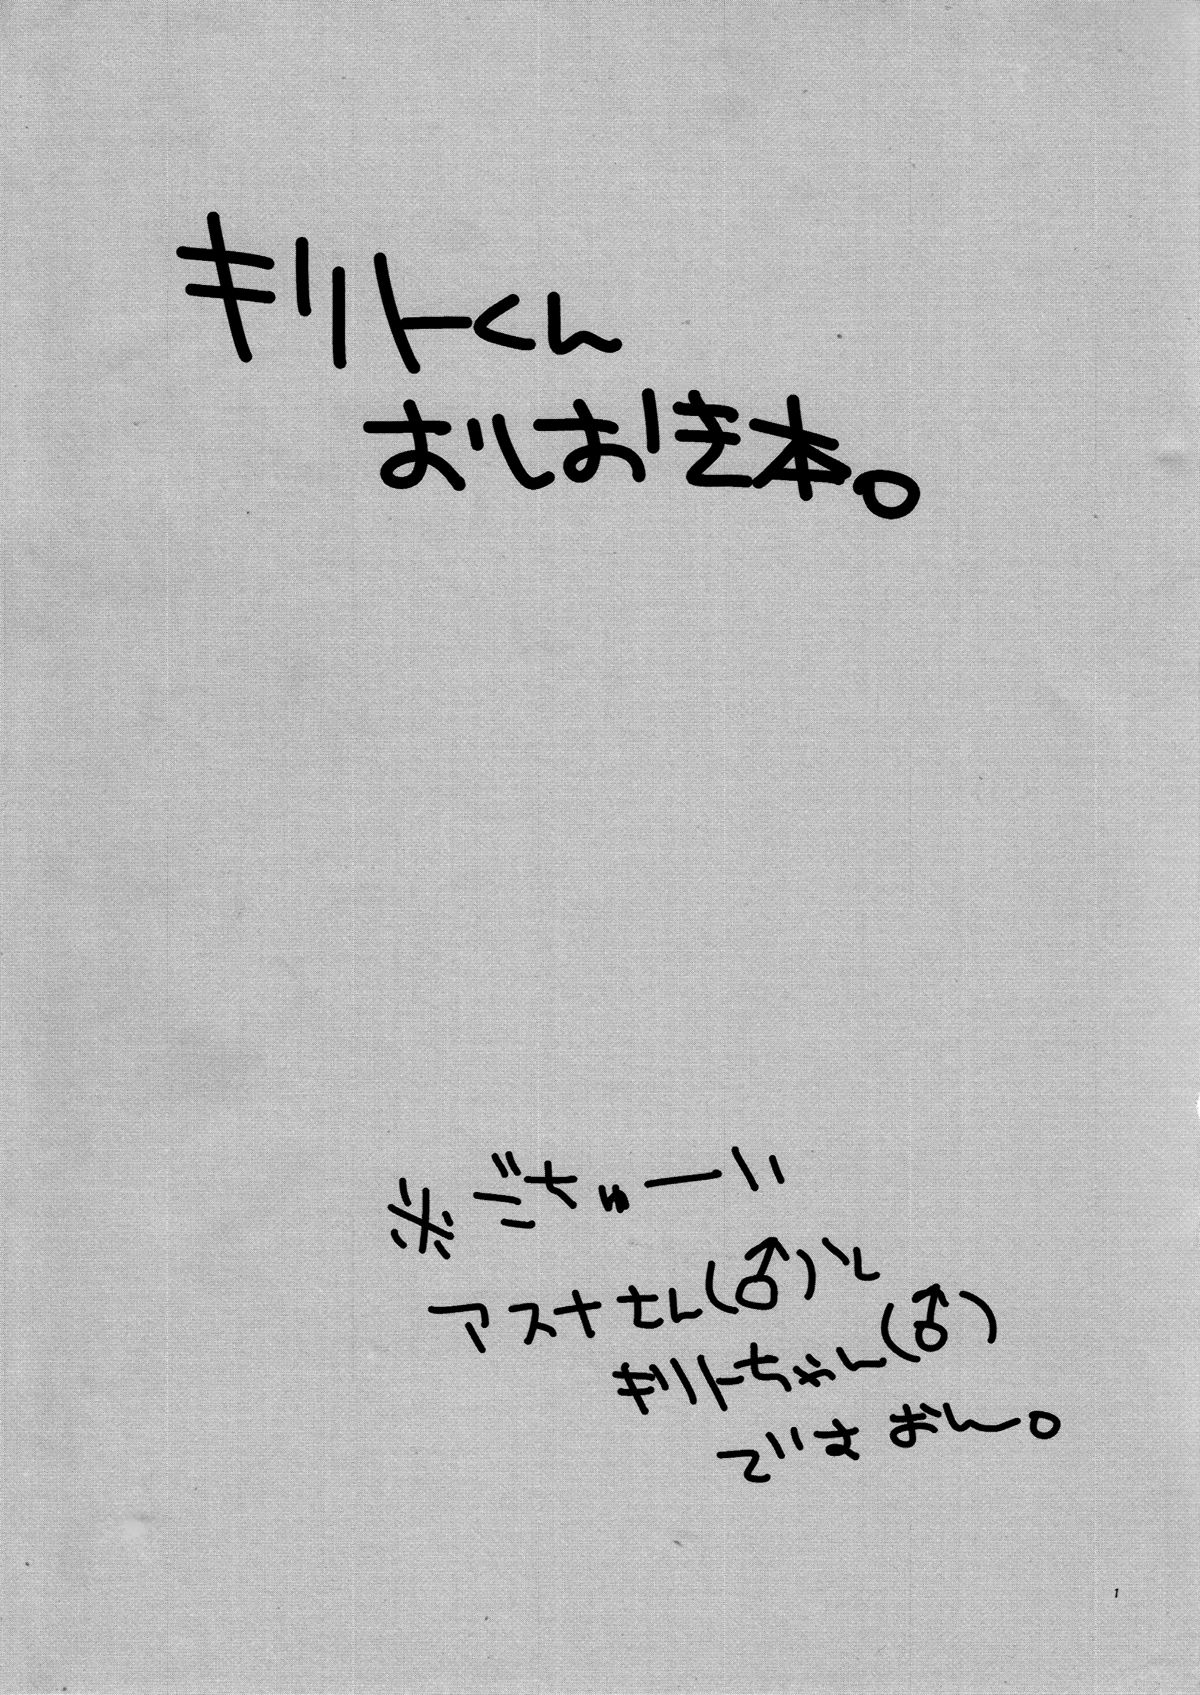 キリトくん
おしおき本。
※ごちゅーい
アスナさん(♂)と
キリトちゃん(♂)
では おへ。
1